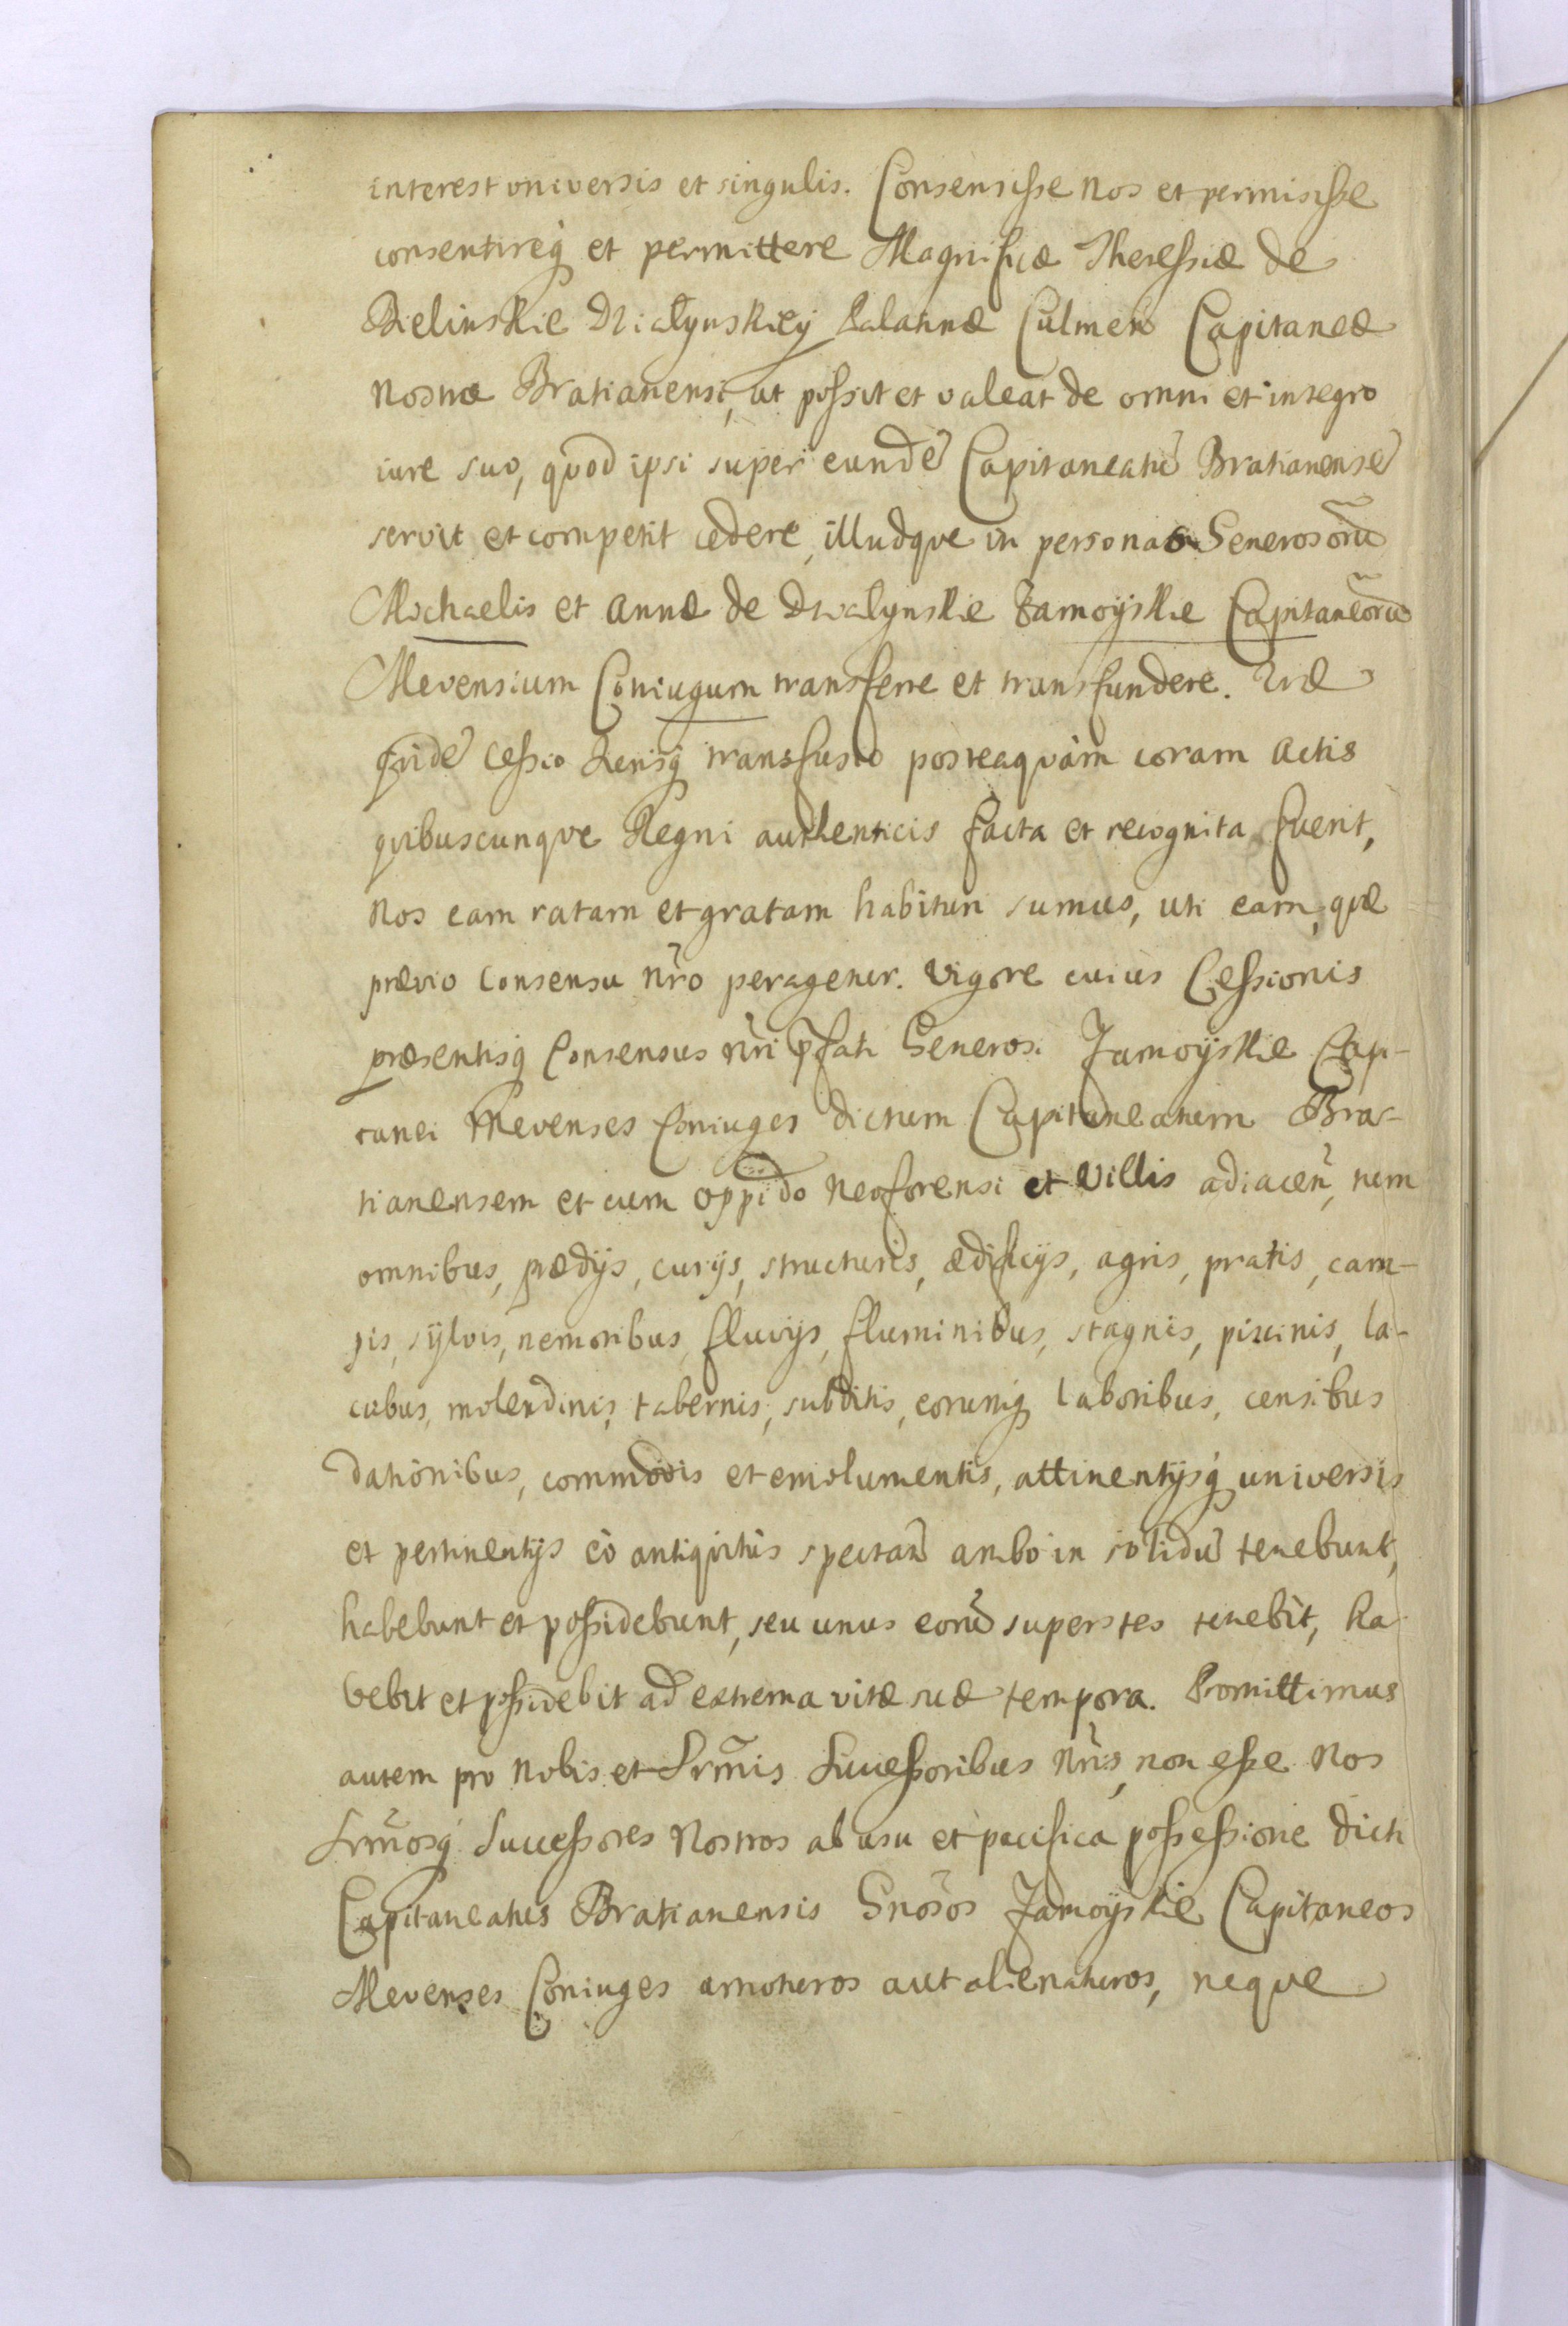 interest universis et singulis. Consensisse Nos et permisisse
consentireq; et permittere Magnificæ Theressiæ de
Bielinskie Działynskiey Palatinæ Culmeñ Capitaneæ
Nostræ Bratianensi, ut possit et valeat de omni et integro
iure suo, quod ipsi super eundẽ Capitaneatũ Bratianensẽ
servit et competit cedere, illudque in personas Generosorũ
Michaelis et Annæ de Dzialynskie Zamoyskie Capitaneorũ
Mevensium Coniugum transferre et transfundere. Quæ
quidẽ Cessio iurisq; transfusio posteaquàm coram Actis
quibuscunque Regni authenticis facta et recognita fuerit,
Nos eam ratam et gratam habituri sumus, uti eam, quæ
prævio Consensu Nr̃o peragetur. Vigore cuius Cessionis
præsentisq; Consensus Nr̃i p̃fati Generosi Zamoyskie Capi-
tanei Mevenses Coniuges dictum Capitaneatum Bra-
tianensem et cum oppido Neoforensi et Villis adiaceñ, tum
omnibus, prædijs, curijs, structuris, ædificijs, agris, pratis, cam-
pis, sylvis, nemoribus, fluvijs, fluminibus, stagnis, piscinis, la-
cubus, molendinis, tabernis, subditis, eorumq; laboribus, censibus
dationibus, commodis et emolumentis, attinentijsq; universis
et pertinentijs eò antiquitùs spectañ ambo in solidũ tenebunt,
habebunt et possidebunt, seu unus eorũ superstes tenebit, ha-
bebit et possidebit ad extrema vitæ suæ tempora. Promittimus
autem pro Nobis et Srm̃is Successoribus Nr̃is, non esse Nos
Srm̃osq; Successores Nostros ab usu et pacifica possessione dicti
Capitaneatus Bratianensis Gnõsos Zamoyskie Capitaneos
Mevenses Coniuges amoturos aut alienaturos, neque